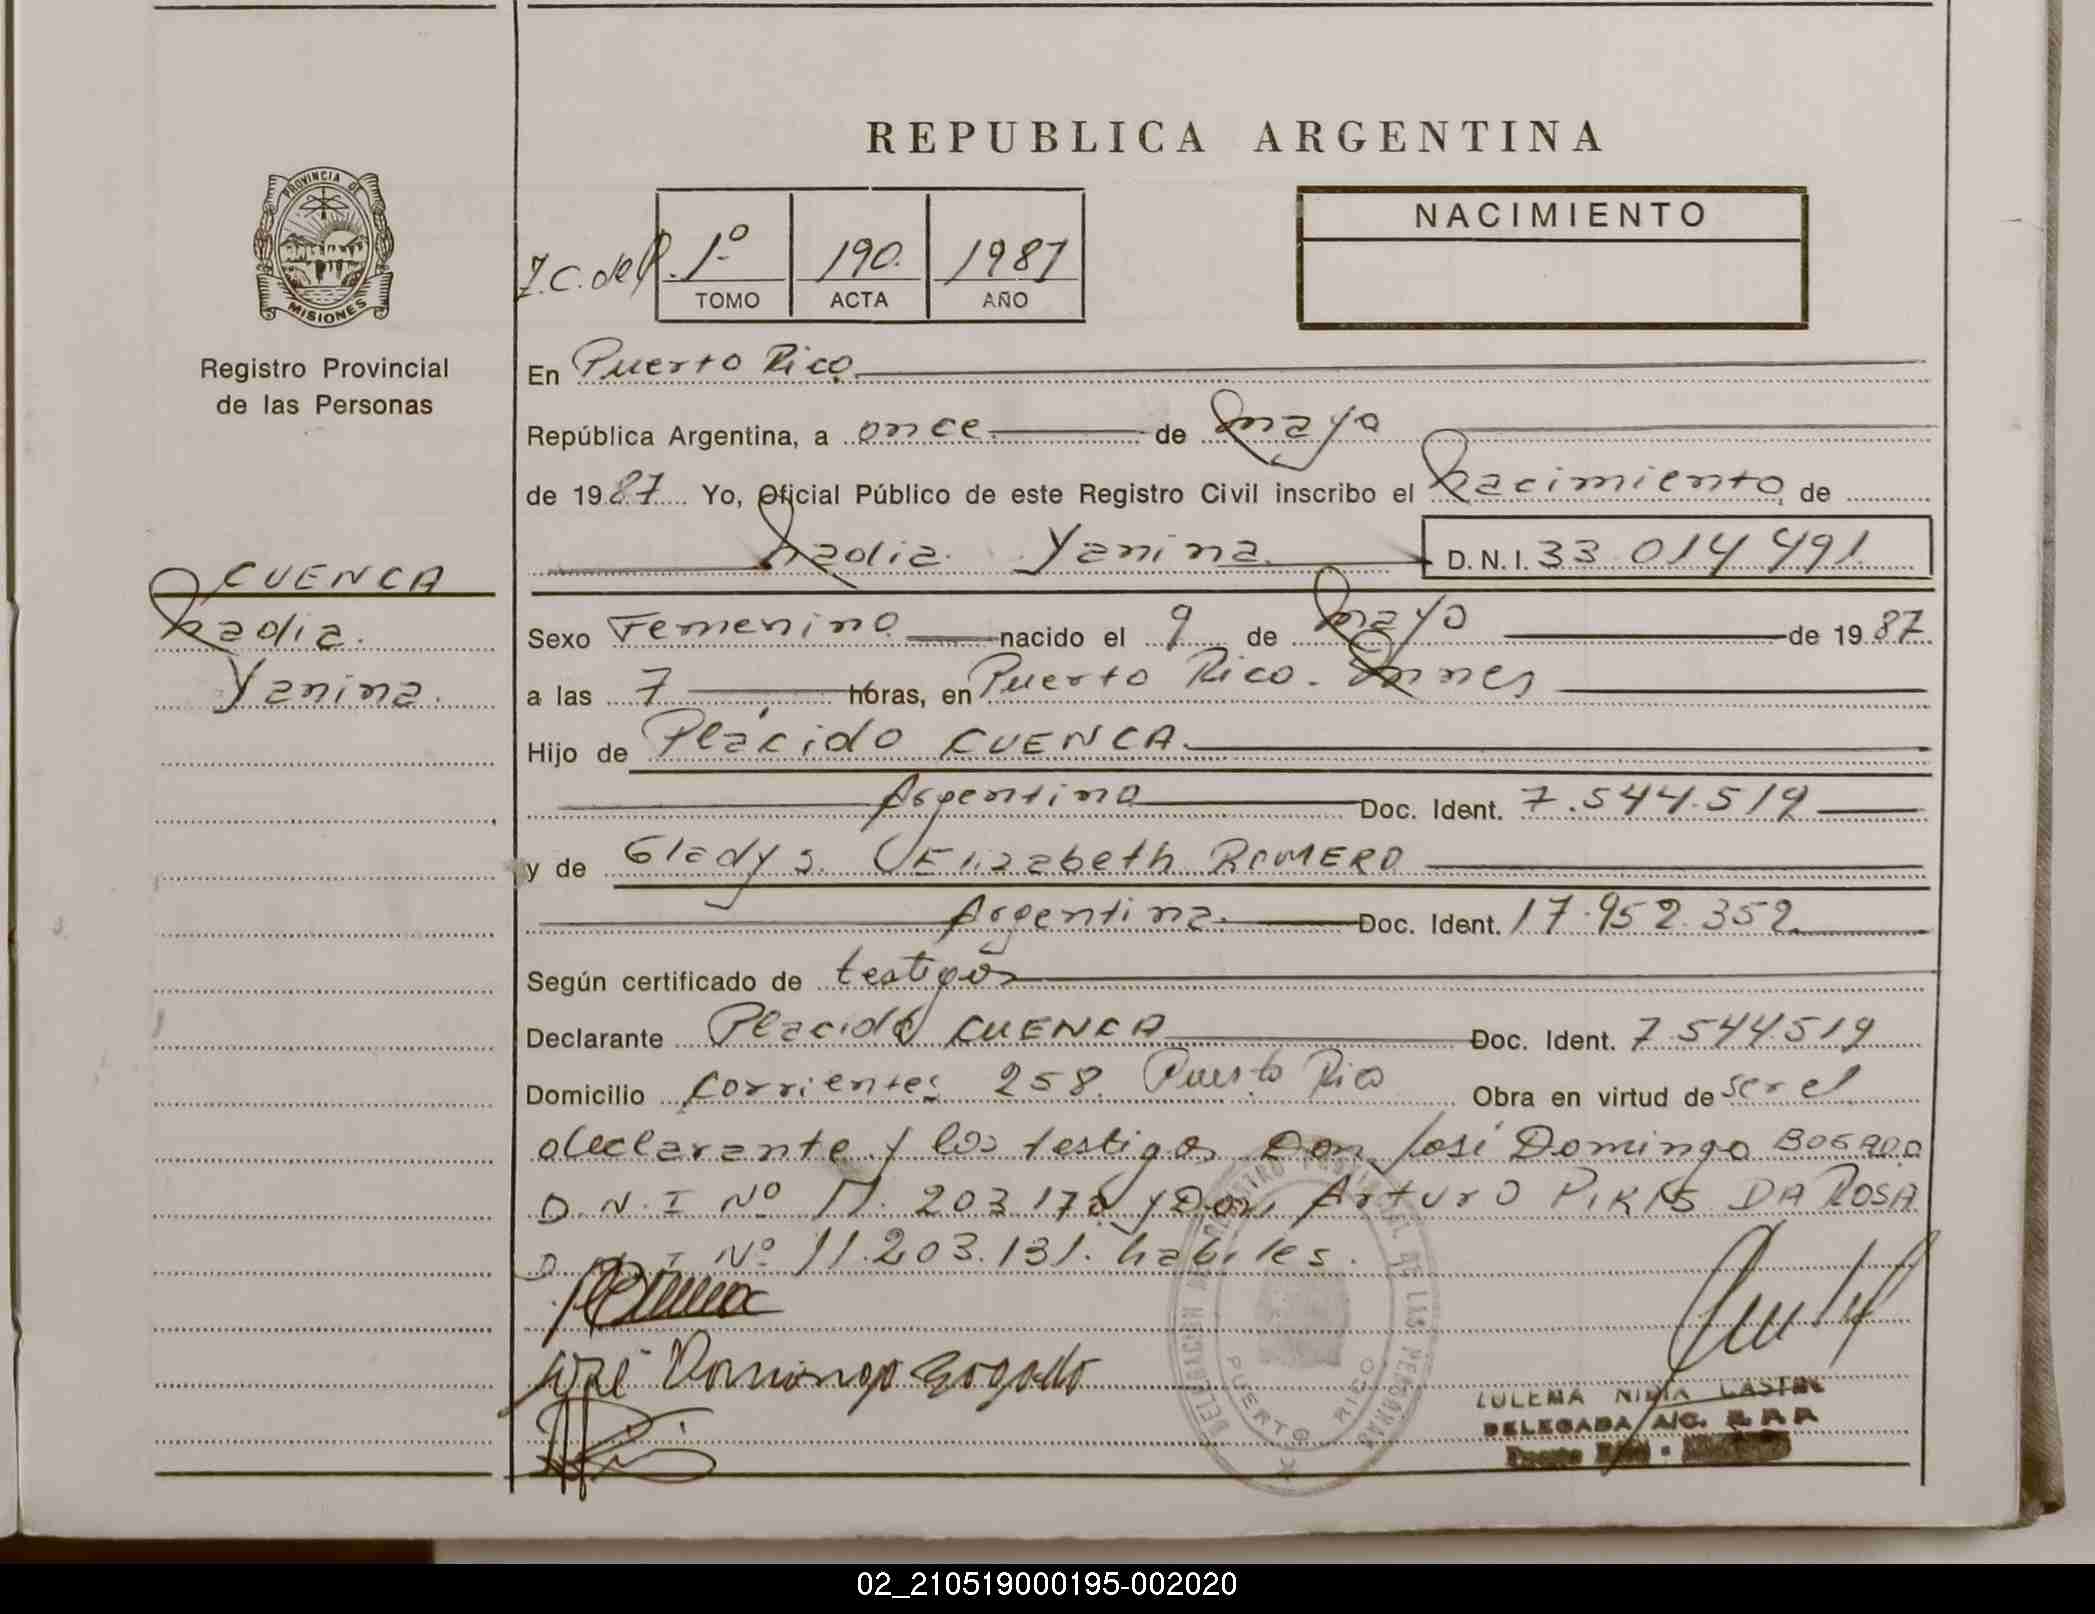 REPUBLICA ARGENTINA
PROVINCIA DE
MISIONES
Registro Provincial
de las Personas
1º 190. 1987
TOMO ACTA AÑO
NACIMIENTO
En Puerto Rico.
República Argentina, a once. de mayo
de 1987 Yo, Oficial Público de este Registro Civil inscribo el nacimiento de
Nadia Yanina. D.N.I. 33 014 491.
CUENCA
Nadia.
Yanina.
Sexo Femenino nacido el 9 de mayo de 1987
a las 7 horas, en Puerto Rico. Mnes
Hijo de Plácido CUENCA.
Argentino Doc. Ident. 7.544.519
y de Gladys Elizabeth ROMERO
Argentina. Doc. Ident. 17.952.352
Según certificado de testigos
Declarante Placido CUENCA Doc. Ident. 7.544.519
Domicilio Corrientes 258. Puerto Rico Obra en virtud de ser el
declarante y los testigos Don José Domingo BOGADO
D.N.I Nº 203 y Don Arturo DA ROSA
Nº 11.203.131. habiles.
José Domingo Bogado
DELEGACION REGISTRO PROVINCIAL DE LAS PERSONAS
PUERTO RICO
NIDIA CASTRO
DELEGADA A/C. R.P.P
Puerto Rico -
02_210519000195-002020